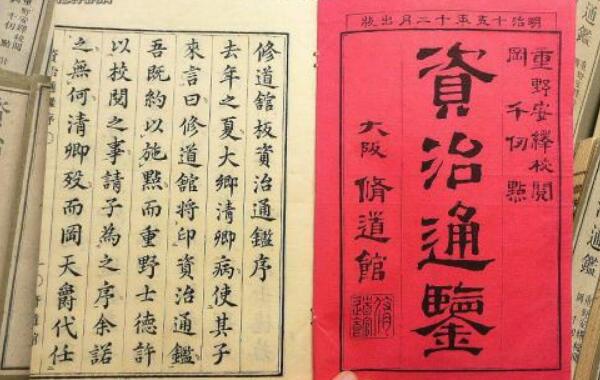 明治十五年十二月出版
重野安繹校閱
岡千仞點
資治通鑒
大阪 脩道館
修道館板資治通鑑序
去年之夏大鄉清卿病使其子
來言曰修道館將印資治通鑑
吾既約以施點而重野士德許
以校閱之事請子為之序余諾
之無何清卿歿而岡天爵代任
資治通鑑序